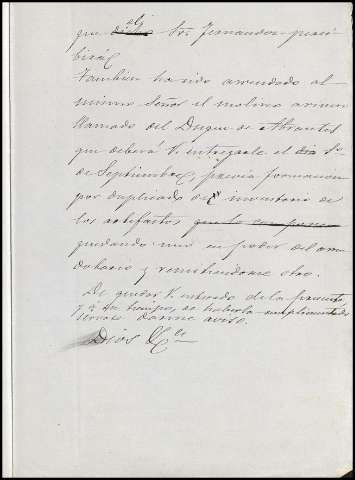 que el Sr Fernandez perci
birá.
Tambien ha sido arrendado al
mismo Señor el molino arinero
llamado del Duque de Abrantes
que deberá V. entregarle el dia 1º
de Septiembre, previa formacion
por duplicado de un inventario de
los artefactos que lo componen
quedando uno en poder del arren
datario y remitiendome otro.
De quedar V. enterado de la presente,
y á su tiempo, de haberla cumplimentado
servase darme aviso.
Dios &c